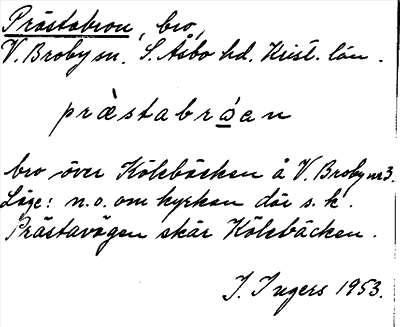 Prästabron, bro,
V. Broby sn. S. Åsbo hd. Krist. län.
præ̀stabrá̱an
bro över Kölebäcken å V. Broby nr 3.
Läge: n.o. om kyrkan där s.k.
Prästavägen skär Kölebäcken.
I. Ingers 1953.